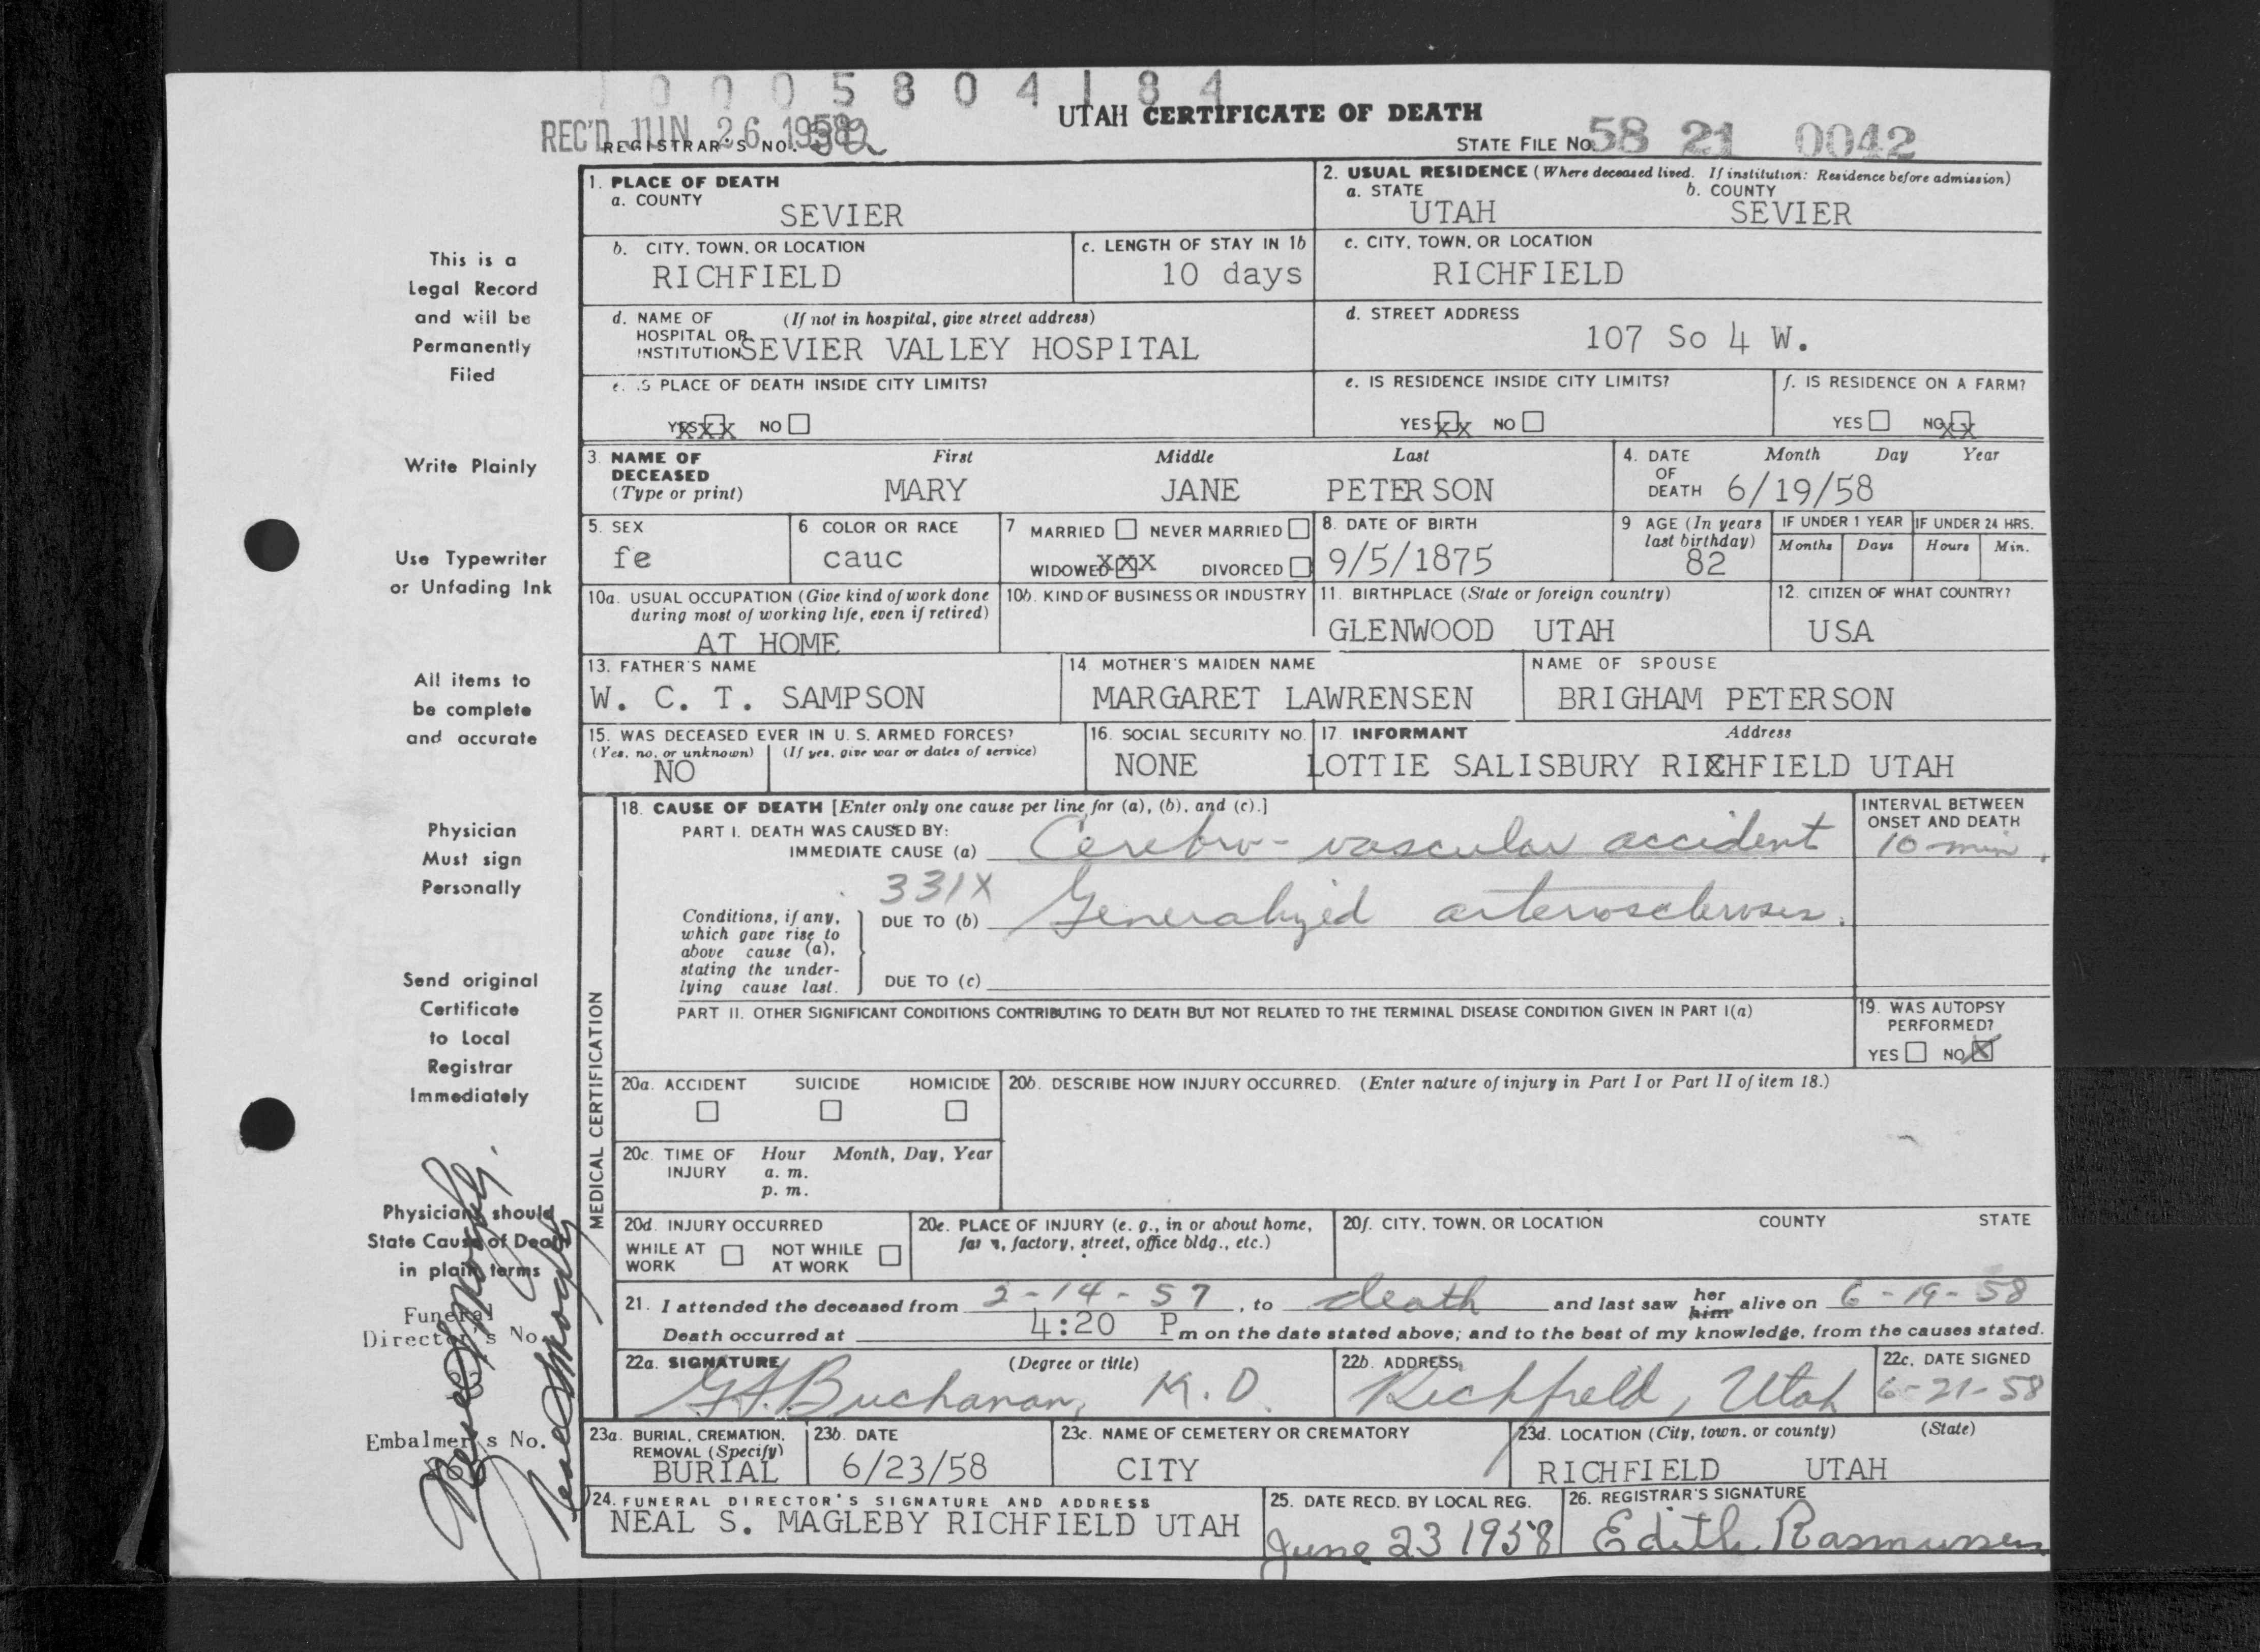 1 0 0 0 5 8 0 4 1 8 4
UTAH CERTIFICATE OF DEATH
REC'D JUN 26 1958
REGISTRAR'S NO. 52
STATE FILE NO. 58 21 0042
1. PLACE OF DEATH
a. COUNTY
SEVIER
2. USUAL RESIDENCE (Where deceased lived. If institution: Residence before admission)
a. STATE b. COUNTY
UTAH SEVIER
b. CITY, TOWN, OR LOCATION
RICHFIELD
c. LENGTH OF STAY IN 1b
10 days
c. CITY, TOWN, OR LOCATION
RICHFIELD
d. NAME OF (If not in hospital, give street address)
HOSPITAL OR
INSTITUTION SEVIER VALLEY HOSPITAL
d. STREET ADDRESS
107 So 4 W.
e. IS PLACE OF DEATH INSIDE CITY LIMITS?
YES XXX NO
e. IS RESIDENCE INSIDE CITY LIMITS?
YES XX NO
f. IS RESIDENCE ON A FARM?
YES NO XX
3. NAME OF DECEASED
(Type or print)
First Middle Last
MARY JANE PETERSON
4. DATE OF DEATH
Month Day Year
6/19/58
5. SEX
fe
6 COLOR OR RACE
cauc
7 MARRIED NEVER MARRIED
WIDOWED XXX DIVORCED
8. DATE OF BIRTH
9/5/1875
9 AGE (In years
last birthday)
82
IF UNDER 1 YEAR IF UNDER 24 HRS.
Months Days Hours Min.
10a. USUAL OCCUPATION (Give kind of work done
during most of working life, even if retired)
AT HOME
10b. KIND OF BUSINESS OR INDUSTRY
11. BIRTHPLACE (State or foreign country)
GLENWOOD UTAH
12. CITIZEN OF WHAT COUNTRY?
USA
13. FATHER'S NAME
W. C. T. SAMPSON
14. MOTHER'S MAIDEN NAME
MARGARET LAWRENSEN
NAME OF SPOUSE
BRIGHAM PETERSON
15. WAS DECEASED EVER IN U. S. ARMED FORCES?
(Yes, no, or unknown) (If yes, give war or dates of service)
NO
16. SOCIAL SECURITY NO.
NONE
17. INFORMANT Address
LOTTIE SALISBURY RICHFIELD UTAH
MEDICAL CERTIFICATION
18. CAUSE OF DEATH [Enter only one cause per line for (a), (b), and (c).]
PART I. DEATH WAS CAUSED BY:
IMMEDIATE CAUSE (a) Cerebro-vascular accident
INTERVAL BETWEEN
ONSET AND DEATH
10 min.
331X
Conditions, if any,
which gave rise to
above cause (a),
stating the under-
lying cause last.
DUE TO (b) Generalized arteriosclerosis.
DUE TO (c)
PART II. OTHER SIGNIFICANT CONDITIONS CONTRIBUTING TO DEATH BUT NOT RELATED TO THE TERMINAL DISEASE CONDITION GIVEN IN PART I(a)
19. WAS AUTOPSY
PERFORMED?
YES NO X
20a. ACCIDENT SUICIDE HOMICIDE
20b. DESCRIBE HOW INJURY OCCURRED. (Enter nature of injury in Part I or Part II of item 18.)
20c. TIME OF INJURY
Hour Month, Day, Year
a. m.
p. m.
20d. INJURY OCCURRED
WHILE AT WORK NOT WHILE AT WORK
20e. PLACE OF INJURY (e. g., in or about home,
farm, factory, street, office bldg., etc.)
20f. CITY, TOWN, OR LOCATION COUNTY STATE
21. I attended the deceased from 2-14-57, to death and last saw her him alive on 6-19-58
Death occurred at 4:20 Pm on the date stated above; and to the best of my knowledge, from the causes stated.
22a. SIGNATURE (Degree or title)
G.S. Buchanan, M.D.
22b. ADDRESS
Richfield, Utah
22c. DATE SIGNED
6-21-58
23a. BURIAL, CREMATION,
REMOVAL (Specify)
BURIAL
23b. DATE
6/23/58
23c. NAME OF CEMETERY OR CREMATORY
CITY
23d. LOCATION (City, town, or county) (State)
RICHFIELD UTAH
24. FUNERAL DIRECTOR'S SIGNATURE AND ADDRESS
NEAL S. MAGLEBY RICHFIELD UTAH
25. DATE RECD. BY LOCAL REG.
June 23 1958
26. REGISTRAR'S SIGNATURE
Edith Rasmussen
This is a
Legal Record
and will be
Permanently
Filed
Write Plainly
Use Typewriter
or Unfading Ink
All items to
be complete
and accurate
Physician
Must sign
Personally
Send original
Certificate
to Local
Registrar
Immediately
Physicians should
State Cause of Death
in plain terms
Funeral
Director's No.
Embalmer's No.
Neal S Magleby